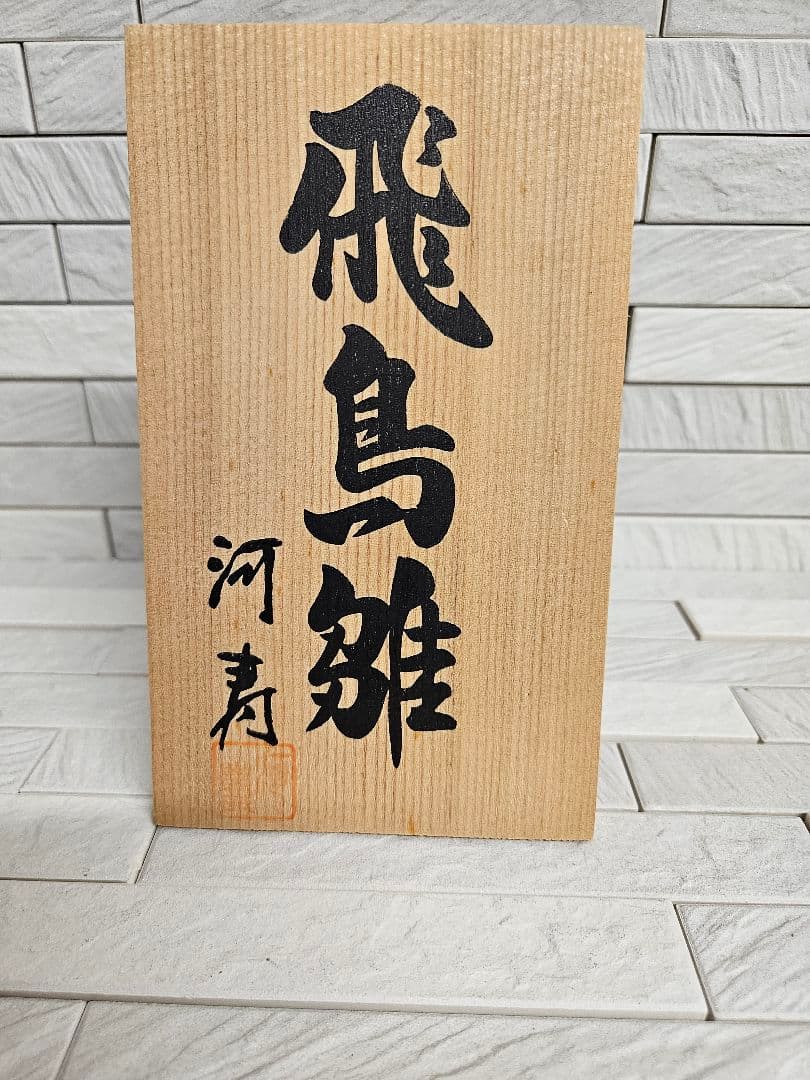 飛鳥雛
河寿